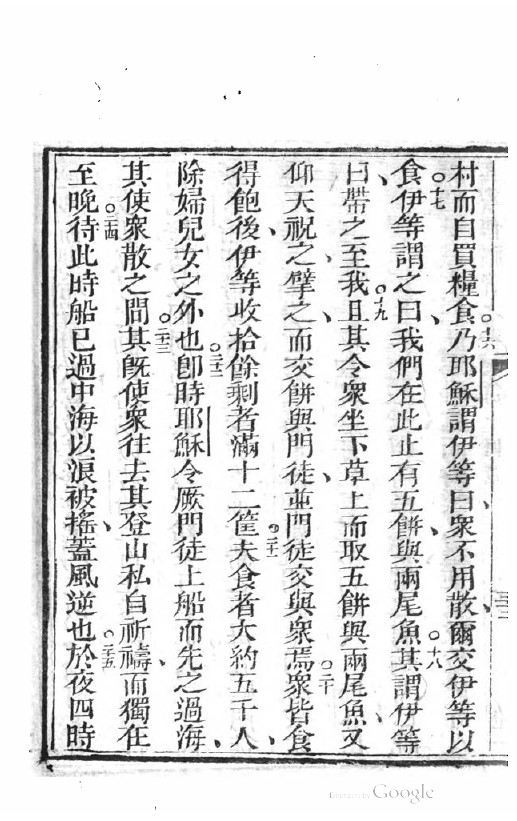 村而自買糧食○十六乃耶穌謂伊等曰、衆不用散、爾交伊等以
食○十七伊等謂之曰、我們在此止有五餅、與兩尾魚○十八其謂伊等
曰、帶之至我○十九且其令衆坐下草上而取五餅與兩尾魚、又
仰天祝之、擘之、而交餅與門徒、並門徒交與衆焉○二十衆皆食
得飽、後伊等收拾餘剩者滿十二筐○二十一夫食者大約五千人、
除婦兒女之外也○二十二卽時耶穌令厥門徒上船而先之過海、
其使衆散之間○二十三其旣使衆往去其登山私自祈禱、而獨在
至晚○二十四待此時船已過中海以浪被搖、蓋風逆也○二十五於夜四時
Google